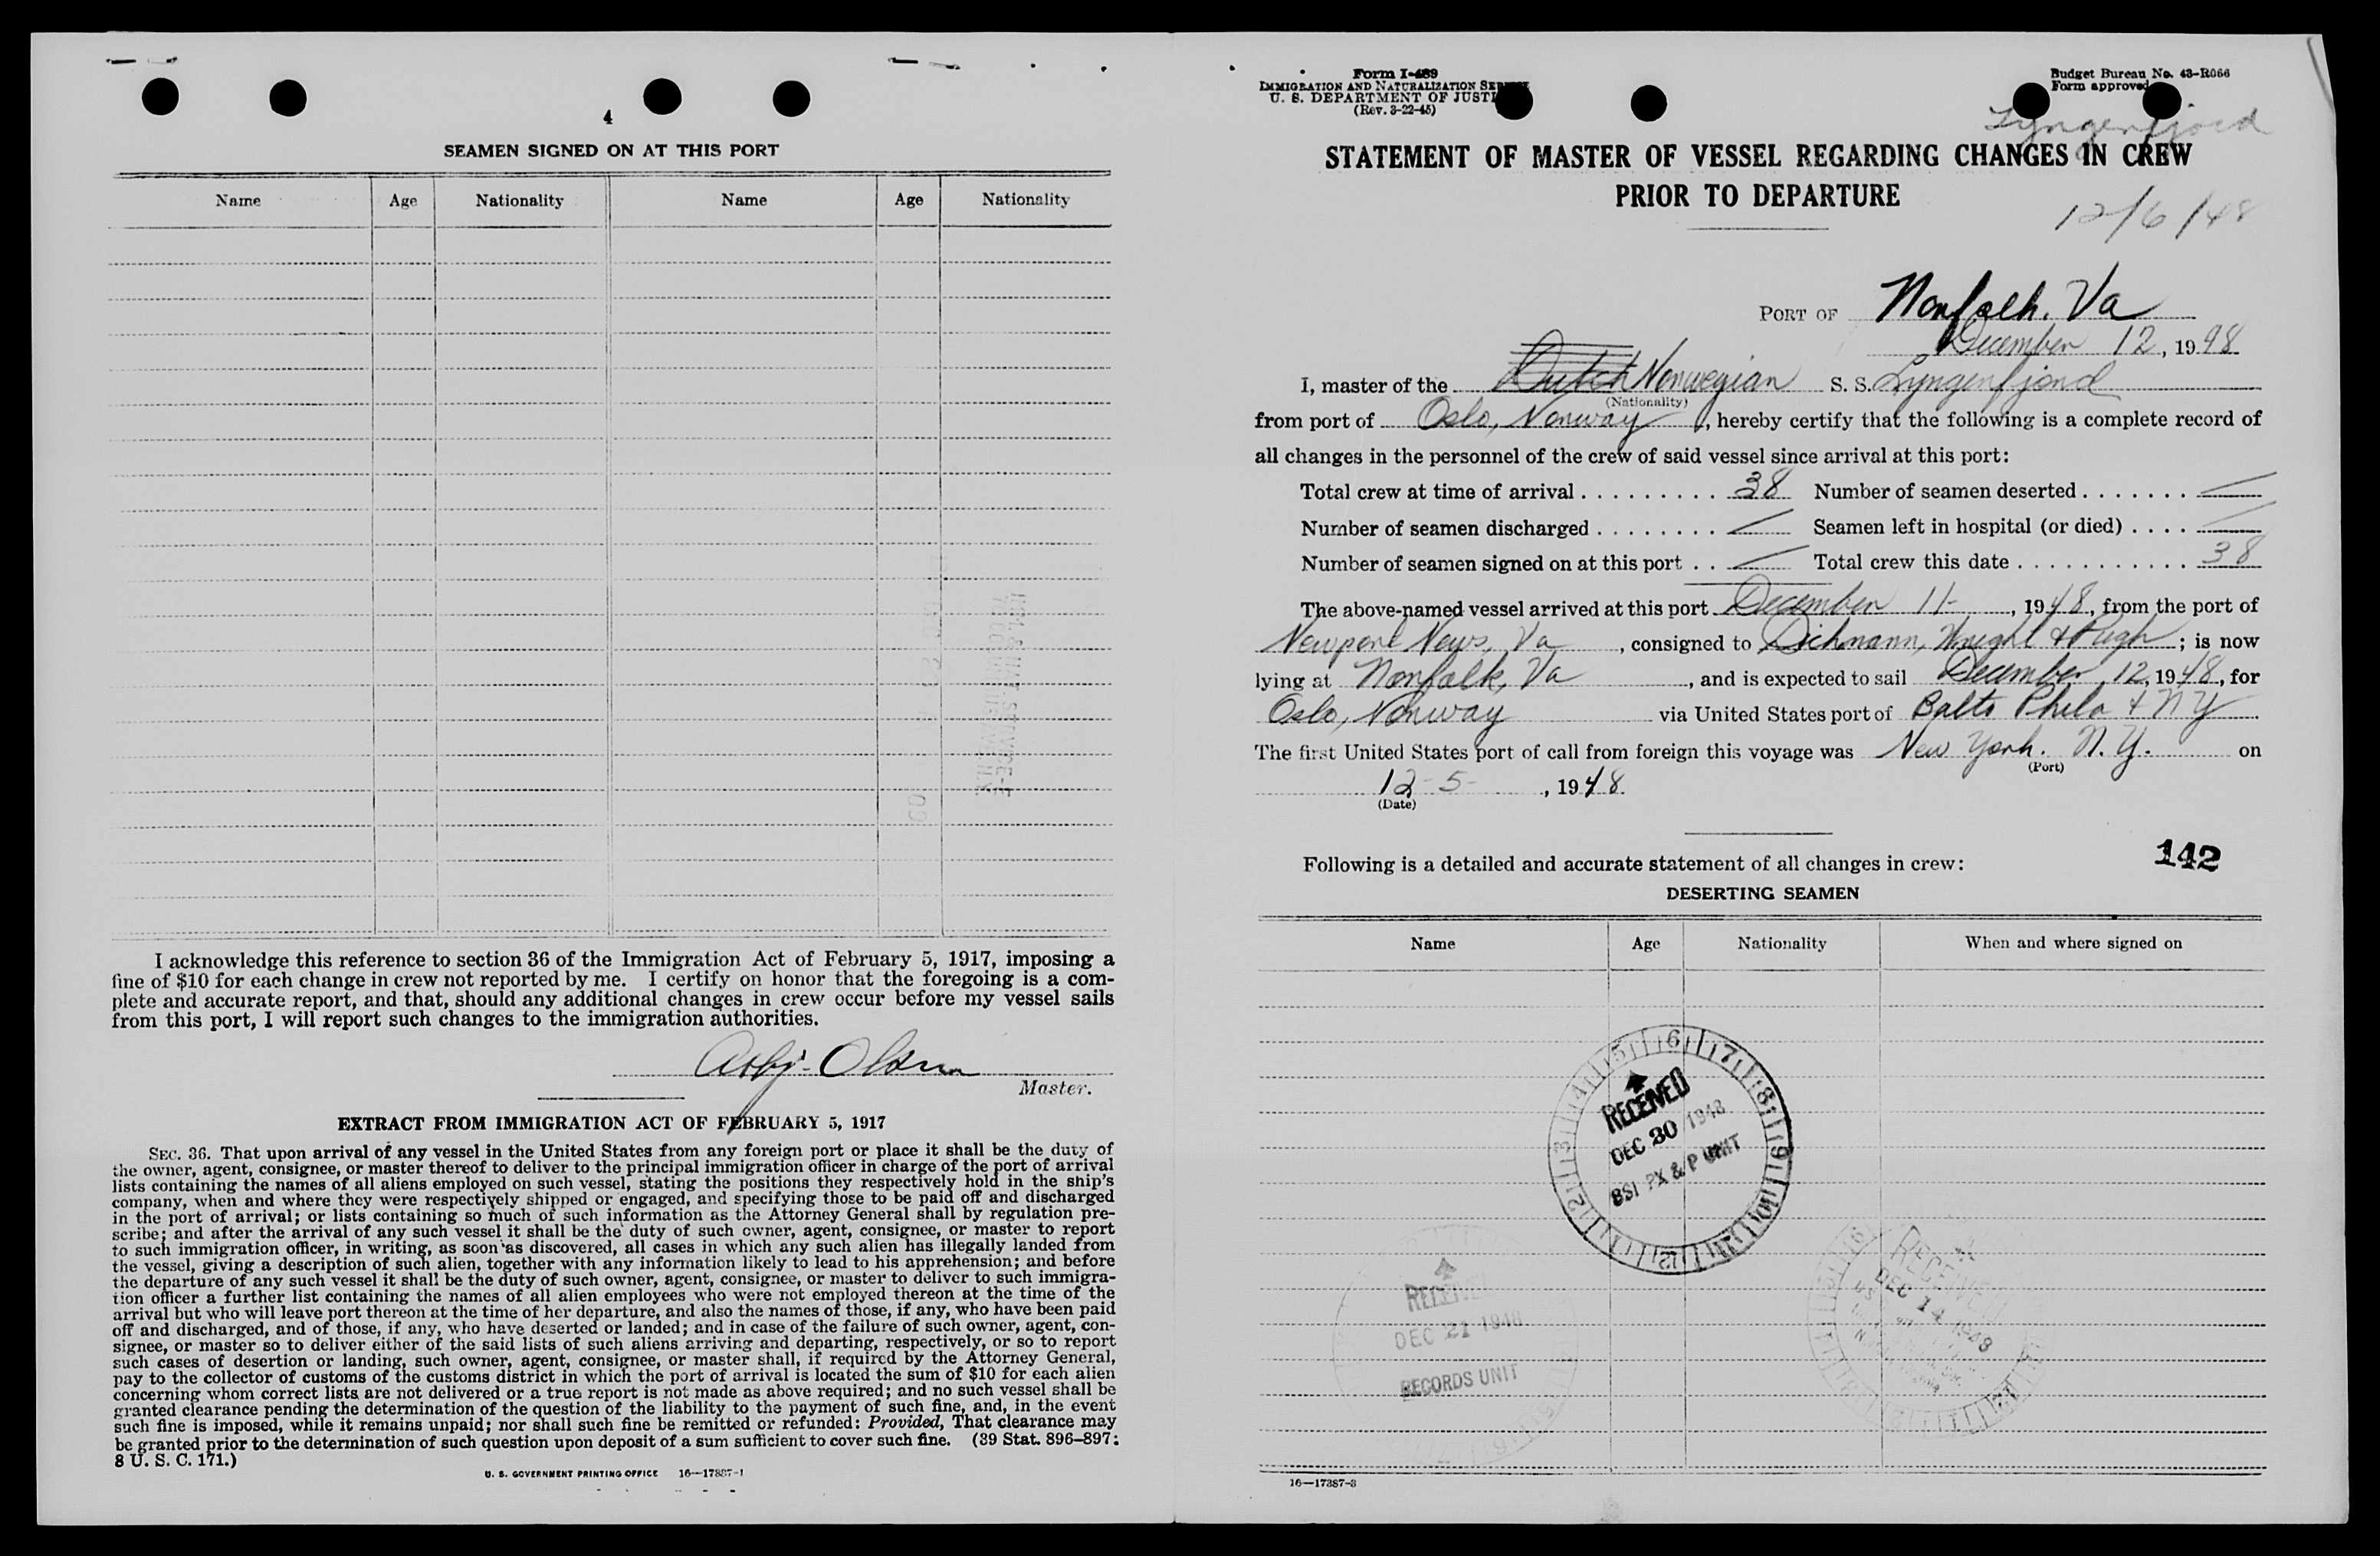 4
SEAMEN SIGNED ON AT THIS PORT
Name Age Nationality Name Age Nationality
I acknowledge this reference to section 36 of the Immigration Act of February 5, 1917, imposing a
fine of $10 for each change in crew not reported by me. I certify on honor that the foregoing is a com-
plete and accurate report, and that, should any additional changes in crew occur before my vessel sails
from this port, I will report such changes to the immigration authorities.
Asbj. Olsen
Master.
EXTRACT FROM IMMIGRATION ACT OF FEBRUARY 5, 1917
SEC. 36. That upon arrival of any vessel in the United States from any foreign port or place it shall be the duty of
the owner, agent, consignee, or master thereof to deliver to the principal immigration officer in charge of the port of arrival
lists containing the names of all aliens employed on such vessel, stating the positions they respectively hold in the ship's
company, when and where they were respectively shipped or engaged, and specifying those to be paid off and discharged
in the port of arrival; or lists containing so much of such information as the Attorney General shall by regulation pre-
scribe; and after the arrival of any such vessel it shall be the duty of such owner, agent, consignee, or master to report
to such immigration officer, in writing, as soon as discovered, all cases in which any such alien has illegally landed from
the vessel, giving a description of such alien, together with any information likely to lead to his apprehension; and before
the departure of any such vessel it shall be the duty of such owner, agent, consignee, or master to deliver to such immigra-
tion officer a further list containing the names of all alien employees who were not employed thereon at the time of the
arrival but who will leave port thereon at the time of her departure, and also the names of those, if any, who have been paid
off and discharged, and of those, if any, who have deserted or landed; and in case of the failure of such owner, agent, con-
signee, or master so to deliver either of the said lists of such aliens arriving and departing, respectively, or so to report
such cases of desertion or landing, such owner, agent, consignee, or master shall, if required by the Attorney General,
pay to the collector of customs of the customs district in which the port of arrival is located the sum of $10 for each alien
concerning whom correct lists are not delivered or a true report is not made as above required; and no such vessel shall be
granted clearance pending the determination of the question of the liability to the payment of such fine, and, in the event
such fine is imposed, while it remains unpaid; nor shall such fine be remitted or refunded: Provided, That clearance may
be granted prior to the determination of such question upon deposit of a sum sufficient to cover such fine. (39 Stat. 896–897;
8 U. S. C. 171.)
U. S. GOVERNMENT PRINTING OFFICE 16—17387-1
Form I-489
IMMIGRATION AND NATURALIZATION
U. S. DEPARTMENT OF
(Rev. 3-22-45)
Budget Bureau No. 43-R066
Form approved
Lyngenfjord
STATEMENT OF MASTER OF VESSEL REGARDING CHANGES IN CREW
PRIOR TO DEPARTURE
12/6/48
PORT OF Norfolk, Va
December 12, 1948
I, master of the Dutch Norwegian S. S. Lyngenfjord
(Nationality)
from port of Oslo, Norway, hereby certify that the following is a complete record of
all changes in the personnel of the crew of said vessel since arrival at this port:
Total crew at time of arrival . . . . . . . . . 38 Number of seamen deserted . . . . . . . —
Number of seamen discharged . . . . . . . . — Seamen left in hospital (or died) . . . . —
Number of seamen signed on at this port . . — Total crew this date . . . . . . . . . . . . 38
The above-named vessel arrived at this port December 11-, 1948, from the port of
Newport News, Va, consigned to Dichmann, Wright & Pugh; is now
lying at Norfolk, Va, and is expected to sail December 12, 1948, for
Oslo, Norway via United States port of Balto Phila + NY
The first United States port of call from foreign this voyage was New York. N. Y. on
(Port)
12-5-, 1948.
(Date)
142
Following is a detailed and accurate statement of all changes in crew:
DESERTING SEAMEN
Name Age Nationality When and where signed on
RECEIVED
DEC 30 1948
BSI PX & P UNIT
RECEIVED
DEC 21 1948
RECORDS UNIT
RECEIVED
DEC 14 1948
16—17387-3